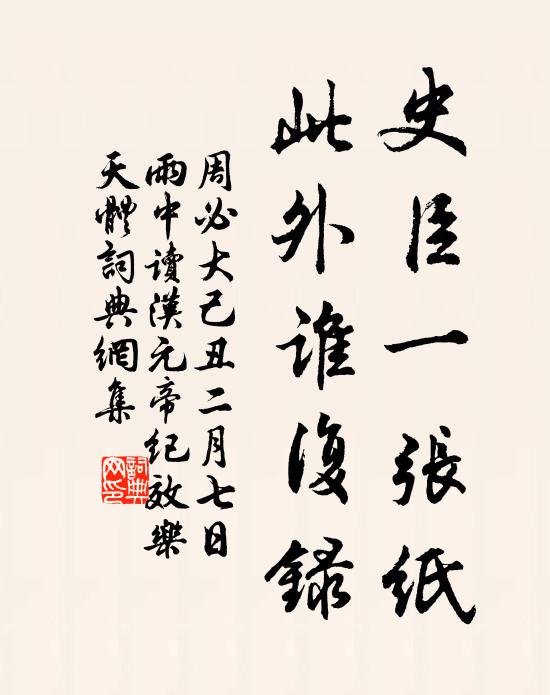 史臣一張紙
此外誰復錄
周必大己丑二月七日
雨中讀漢元帝紀效樂
天體詞典網集
詞典
网